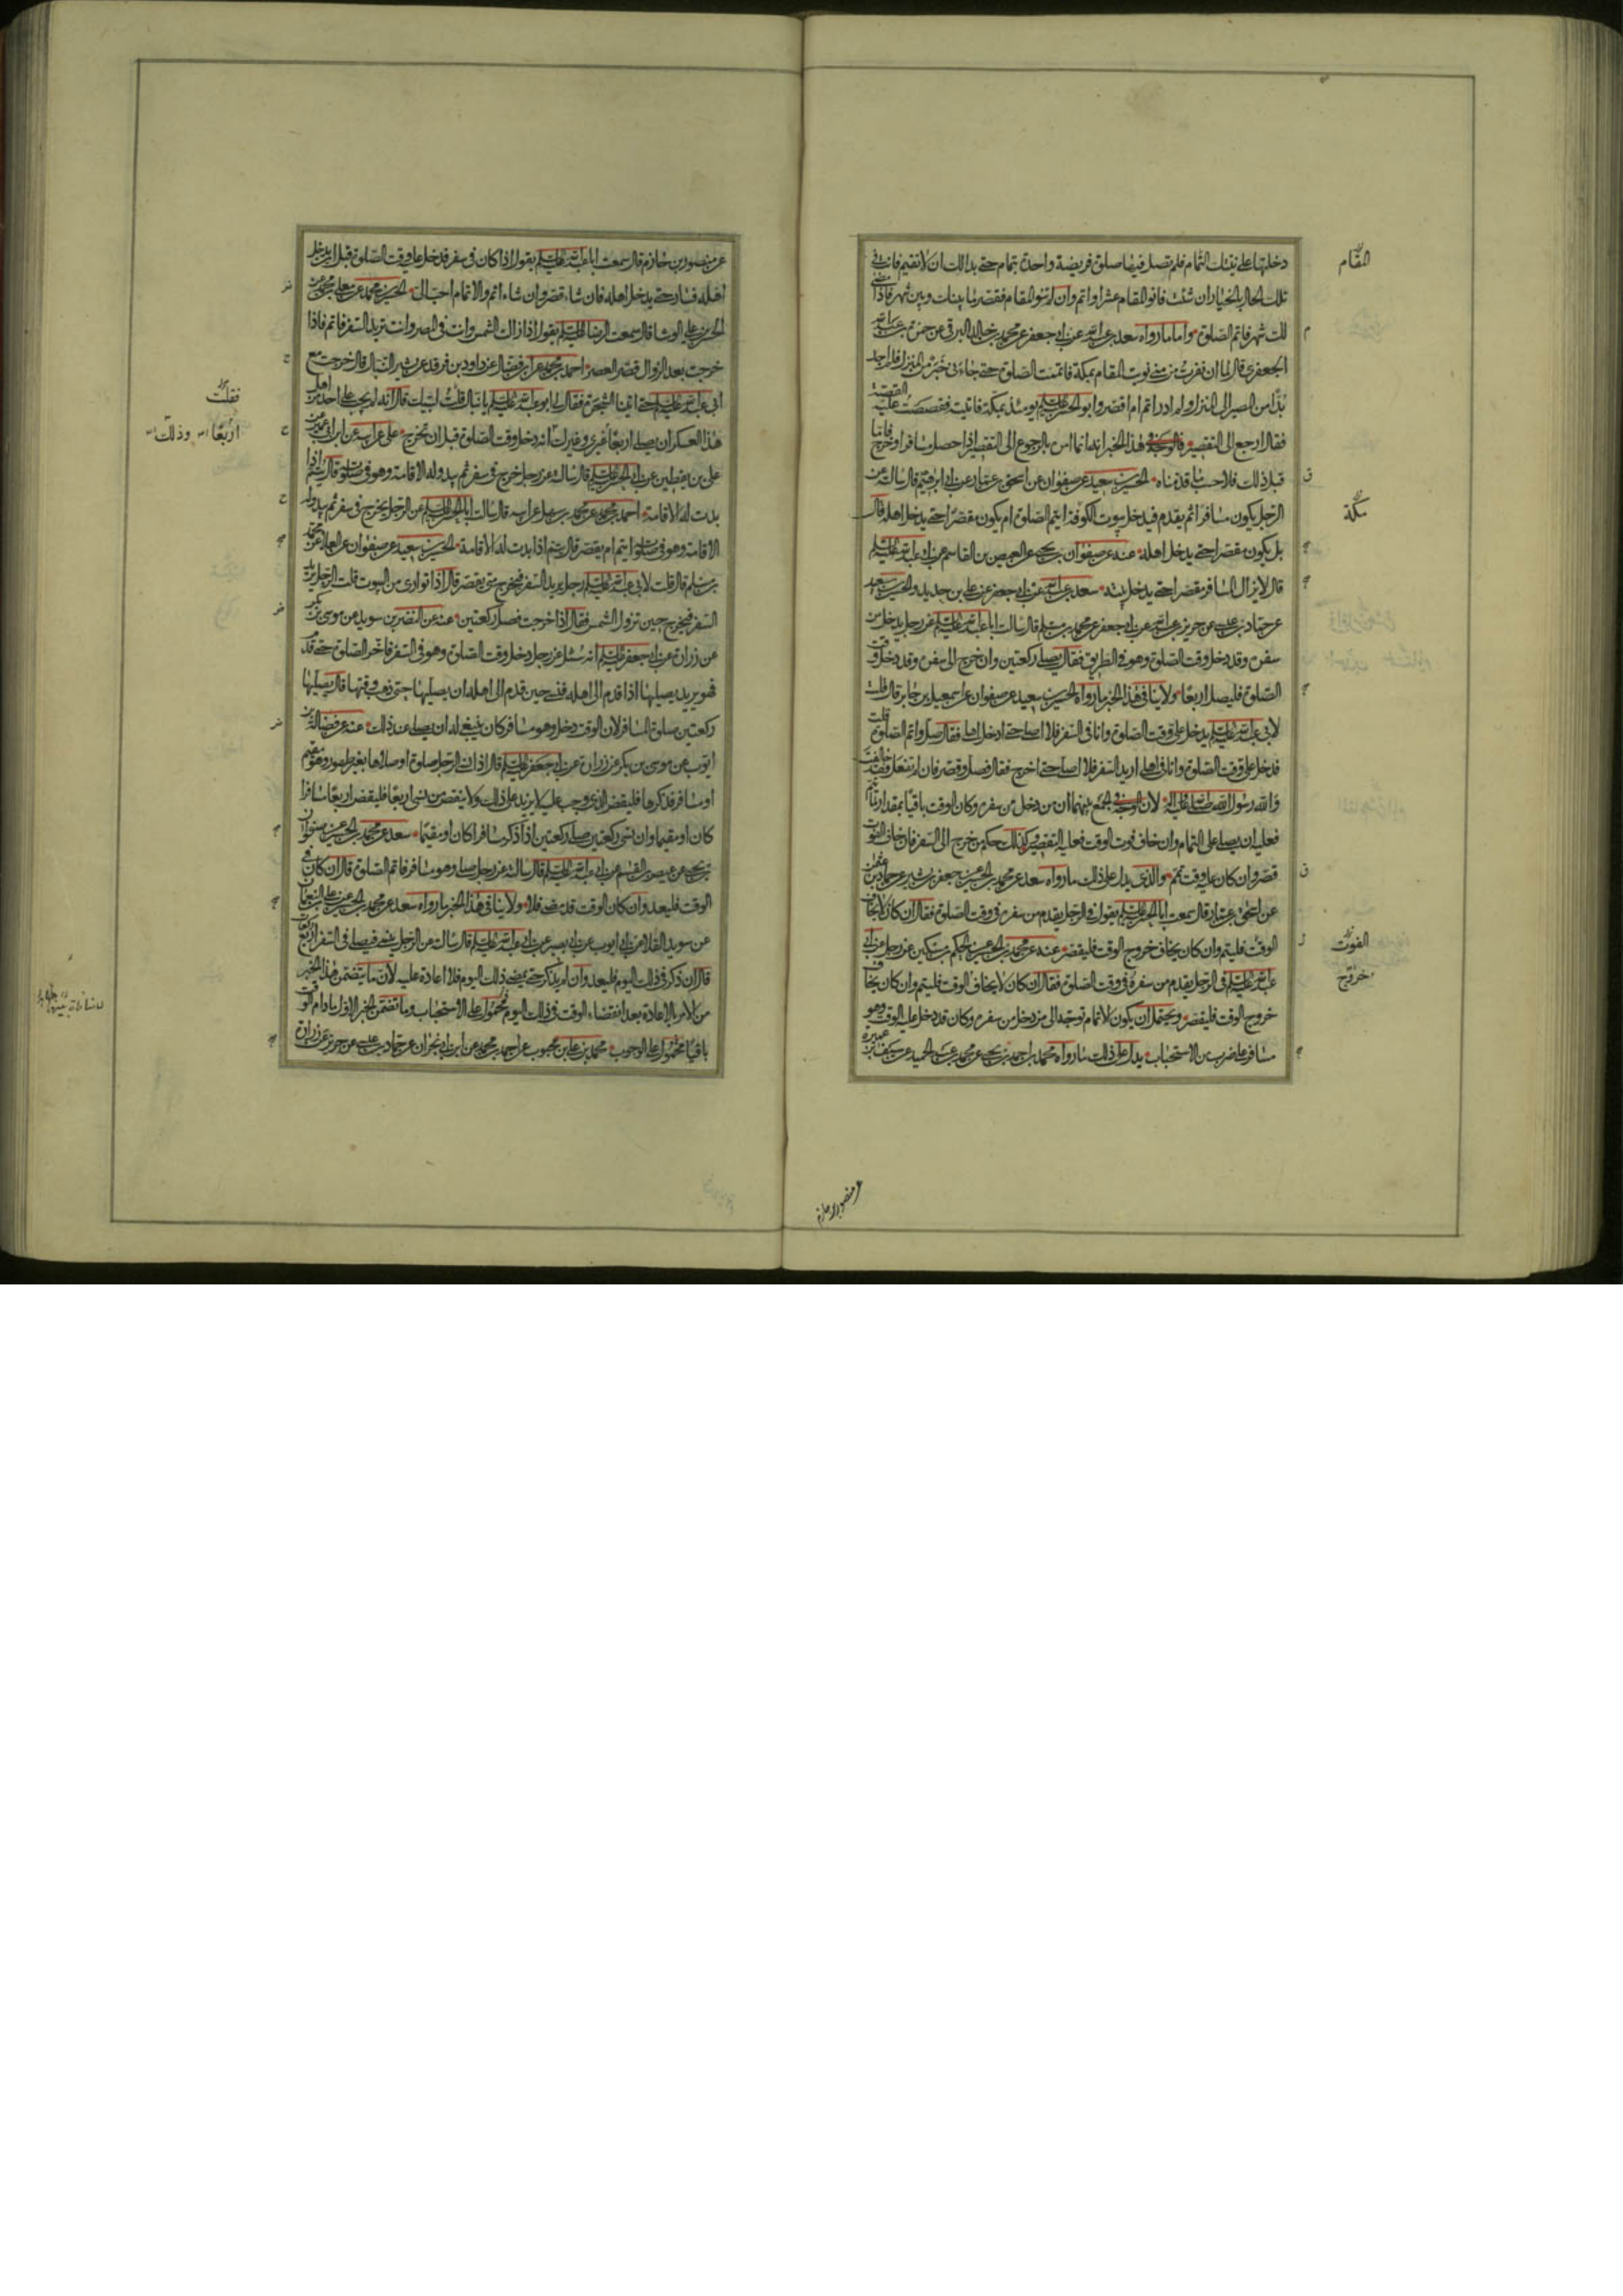 دخلتها على نيتك التمام فلم تصل فيها صلوة فريضة واحدة بتمام حتى بدا لك ان لا تقيم فانت في
تلك الحال بالخيار ان شئت فانو المقام عشرا واتم وان لم تنو المقام فقصر ما بينك وبين شهر فاذا مضى
لك شهر فاتم الصلوة واما ما رواه سعد بن عبد الله عن ابي جعفر عن محمد بن خالد البرقي عن حمزة بن عبد الله
الجعفري قال لما ان نفرت من منى نويت المقام بمكة فاتممت الصلوة حتى جاءني خبر من المنزل فلم اجد
بدا من المصير الى المنزل ولم ادر اتم ام اقصر وابو الحسن عليه السلم يومئذ بمكة فاتيته فقصصت عليه القصة
فقال ارجع الى التقصير فالوجه في هذا الخبر انه انما امر بالرجوع الى التقصير اذا حصل مسافرا وخرج فاما
قبل ذلك فلا حسب ما قدمناه الحسين بن سعيد عن صفوان عن اسحق بن عمار عن ابي ابرهيم قال سالته عن
الرجل يكون مسافرا ثم يقدم فيدخل بيوت الكوفة ايتم الصلوة ام يكون مقصرا حتى يدخل اهله قال
بل يكون مقصرا حتى يدخل اهله عنه عن صفوان بن يحيى عن العيص بن القاسم عن ابي عبد الله عليه السلم
قال لا يزال المسافر مقصرا حتى يدخل بيته سعد بن عبد الله عن ابي جعفر عن علي بن حديد والحسين بن سعيد
عن حماد بن عيسى عن حريز بن عبد الله عن ابي جعفر عن محمد بن مسلم قال سالت ابا عبد الله عليه السلم عن رجل يدخل من
سفره وقد دخل وقت الصلوة وهو في الطريق فقال يصلي ركعتين وان خرج الى سفره وقد دخل وقت
الصلوة فليصل اربعا ولا ينافي هذا الخبر ما رواه الحسين بن سعيد عن صفوان عن اسمعيل بن جابر قال قلت
لابي عبد الله عليه السلم يدخل علي وقت الصلوة وانا في السفر فلا اصلي حتى ادخل اهلي فقال صل واتم الصلوة قلت
فدخل علي وقت الصلوة وانا في اهلي اريد السفر فلا اصلي حتى اخرج فقال فصل وقصر فان لم تفعل فقد خالفت
والله رسول الله صلى الله عليه واله لان الوجه في الجمع بينهما ان من دخل من سفره وكان الوقت باقيا بمقدار ما يتم
فعليه ان يصلي على التمام وان خاف فوت الوقت فعليه التقصير وكذلك حكم من خرج الى السفر فان خاف الفوت
قصر وان كان عليه وقت تمم والذي يدل على ذلك ما رواه سعد عن محمد بن الحسين عن جعفر بن بشير عن حماد بن عثمن
عن اسحق بن عمار قال سمعت ابا الحسن عليه السلم يقول في الرجل يقدم من سفره في وقت الصلوة فقال ان كان لا يخاف
الوقت فليتم وان كان يخاف خروج الوقت فليقصر عنه عن محمد بن الحسين عن الحكم بن مسكين عن رجل عن ابي
عبد الله عليه السلم في الرجل يقدم من سفره في وقت الصلوة فقال ان كان لا يخاف الوقت فليتم وان كان يخاف
خروج الوقت فليقصر ويحتمل ان يكون الاتمام توجه الى من دخل من سفره وكان قد دخل عليه الوقت وهو
مسافر على ضرب من الاستحباب يدل على ذلك ما رواه محمد بن احمد بن يحيى عن محمد بن عبد الحميد عن سيف بن عميرة
المقام
مكة
الفوت
خروج
عن منصور بن حازم
عن منصور بن حازم قال سمعت ابا عبد الله عليه السلم يقول اذا كان في سفر فدخل عليه وقت الصلوة قبل ان يدخل
اهله فسار حتى يدخل اهله فان شاء قصر وان شاء اتم والاتمام احب الي الحسين بن محمد عن معلى بن محمد عن
الحسن بن علي الوشا قال سمعت الرضا عليه السلم يقول اذا زالت الشمس وانت في المصر وانت تريد السفر فاتم فاذا
خرجت بعد الزوال قصر العصر احمد بن محمد عن ابن فضال عن داود بن فرقد عن بشير النبال قال خرجت مع
ابي عبد الله عليه السلم حتى اتينا الشجرة فقال لي ابو عبد الله عليه السلم يا نبال قلت لبيك قال انه لم يجب على احد من اهل
هذا العسكر ان يصلي اربعا غيري وغيرك انه دخل وقت الصلوة قبل ان نخرج علي عن ابيه عن ابن ابي عمير عن
علي بن يقطين عن ابي الحسن عليه السلم قال سالته عن رجل خرج في سفر ثم يبدو له الاقامة وهو في صلوته قال يتم اذا
بدت له الاقامة احمد بن محمد عن محمد بن سهل عن ابيه قال سالت ابا الحسن عليه السلم عن الرجل يخرج في سفر ثم يبدو له
الاقامة وهو في صلوته ايتم ام يقصر قال يتم اذا بدت له الاقامة الحسين بن سعيد عن صفوان عن العلا عن محمد
بن مسلم قال قلت لابي عبد الله عليه السلم رجل يريد السفر فيخرج متى يقصر قال اذا توارى من البيوت قلت الرجل يريد
السفر فيخرج حين تزول الشمس فقال اذا خرجت فصل ركعتين عنه عن النضر بن سويد عن موسى بن بكر
عن زرارة عن ابي جعفر عليه السلم انه سئل عن رجل دخل وقت الصلوة وهو في السفر فاخر الصلوة حتى قدم
فهو يريد يصليها اذا قدم الى اهله فنسي حين قدم الى اهله ان يصليها حتى ذهب وقتها قال يصليها
ركعتين صلوة المسافر لان الوقت دخل وهو مسافر كان ينبغي له ان يصلي عند ذلك عنه عن فضالة بن
ايوب عن موسى بن بكر عن زرارة عن ابي جعفر عليه السلم قال اذا نسي الرجل صلوة او صلاها بغير طهور وهو مقيم
او مسافر فذكرها فليقض الذي وجب عليه لا يزيد على ذلك ولا ينقص من نسي اربعا فليقض اربعا مسافرا
كان او مقيما وان نسي ركعتين صلى ركعتين اذا ذكر مسافرا كان او مقيما سعد عن محمد بن الحسين عن صفوان
بن يحيى عن عيص بن القسم عن ابي عبد الله عليه السلم قال سالته عن رجل صلى وهو مسافر فاتم الصلوة قال ان كان في
الوقت فليعد وان كان الوقت قد مضى فلا ولا ينافي هذا الخبر ما رواه سعد عن محمد بن الحسين عن علي بن النعمان
عن سويد القلا عن ابي ايوب عن ابي بصير عن ابي عبد الله عليه السلم قال سالته عن الرجل ينسى فيصلي في السفر اربع ركعات
قال ان ذكر في ذلك اليوم فليعد وان لم يذكر حتى يمضي ذلك اليوم فلا اعادة عليه لان ما يتضمن هذا الخبر
من الامر بالاعادة بعد انقضاء الوقت في ذلك اليوم محمول على الاستحباب وما تضمن الخبر الاول ما دام الوقت
باقيا محمول على الوجوب محمد بن علي بن محبوب عن احمد بن محمد عن ابن ابي نجران عن حماد بن عيسى عن حريز عن زرارة
فقلت
اربعا وذلك